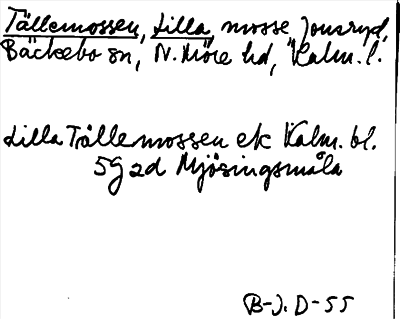 Tällemossen, Lilla, mosse, Jonsryd,
Bäckebo sn, N. Möre hd, Kalm. l.
Lilla Tällemossen ek Kalm. bl.
5G 2d Mjösingsmåla
B-J. D-55